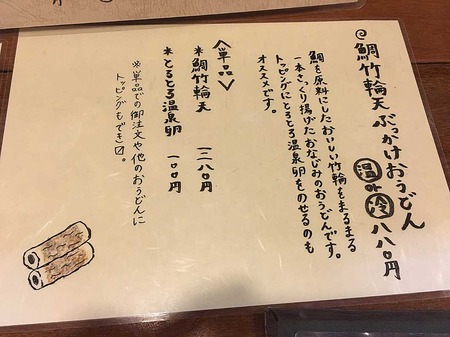 鯛竹輪天ぶっかけおうどん
温or冷 八八〇円
鯛を原料にしたおいしい竹輪をまるまる
一本さっくり揚げたおなじみのおうどんです。
トッピングにとろとろ温泉卵をのせるのも
オススメです。
〈単品〉
*鯛竹輪天 二八〇円
*とろとろ温泉卵 一〇〇円
※単品での御注文や他のおうどんに
トッピングもできます。